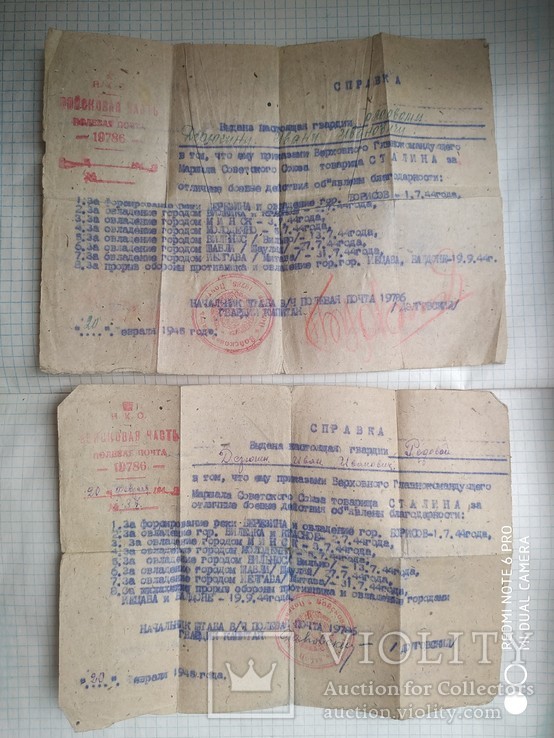 Н.К.О.
ВОЙСКОВАЯ ЧАСТЬ
ПОЛЕВАЯ ПОЧТА
— 19786 —
СПРАВКА
Выдана настоящая гвардии
Иван Иванович
в том, что ему приказами Верховного Главнокомандующего
Маршала Советского Союза товарища СТАЛИНА за
отличные боевые действия об'явлены благодарности:
1. За форсирование реки БЕРЕЗИНА и овладение гор. БОРИСОВ - 1.7.44года,
2. За овладение городом ВИЛЕЙКА и КРАСНОЕ
3. За овладение городом МИНСК - 3.7.44года,
4. За овладение городом МОЛОДЕЧНО
5. За овладение городом ВИЛЬНЮС /Вильно/ - 13.7.44года,
6. За овладение городом ШАВЛИ /Шауляй/
7. За овладение городом ЕЛГАВА /Митава/ - 31.7.44года,
8. За прорыв обороны противника и овладение гор. гор. ИЕЦАВА, ВАЛДОНЕ - 19.9.44г.
НАЧАЛЬНИК ШТАБА В/Ч ПОЛЕВАЯ ПОЧТА 19786
ГВАРДИИ КАПИТАН
"20" февраля 1945 года.
Н.К.О.
ВОЙСКОВАЯ ЧАСТЬ
ПОЛЕВАЯ ПОЧТА
— 19786 —
20
СПРАВКА
Выдана настоящая гвардии Рядовой
Иван Иванович
в том, что ему приказами Верховного Главнокомандующего
Маршала Советского Союза товарища СТАЛИНА за
отличные боевые действия об'явлены благодарности:
1. За форсирование реки БЕРЕЗИНА и овладение гор. БОРИСОВ - 1.7.44года,
2. За овладение гор. ВИЛЕЙКА и КРАСНОЕ - 2.7.44года,
3. За овладение городом МИНСК - 3.7.44года,
4. За овладение городом МОЛОДЕЧНО
5. За овладение городом ВИЛЬНЮС /Вильно/ - 13.7.44года,
6. За овладение городом ШАВЛИ /Шауляй/
7. За овладение городом ЕЛГАВА /Митава/ - 31.7.44года,
8. За прорыв обороны противника и овладение городами
ИЕЦАВА и ВАЛДОНЕ - 19.9.44года.
НАЧАЛЬНИК ШТАБА В/Ч ПОЛЕВАЯ ПОЧТА 19786
ГВАРДИИ КАПИТАН
"20" февраля 1945 года.
REDMI NOTE 6 PRO
MI DUAL CAMERA
VIOLITY
Auction for Collectors
auction.violity.com